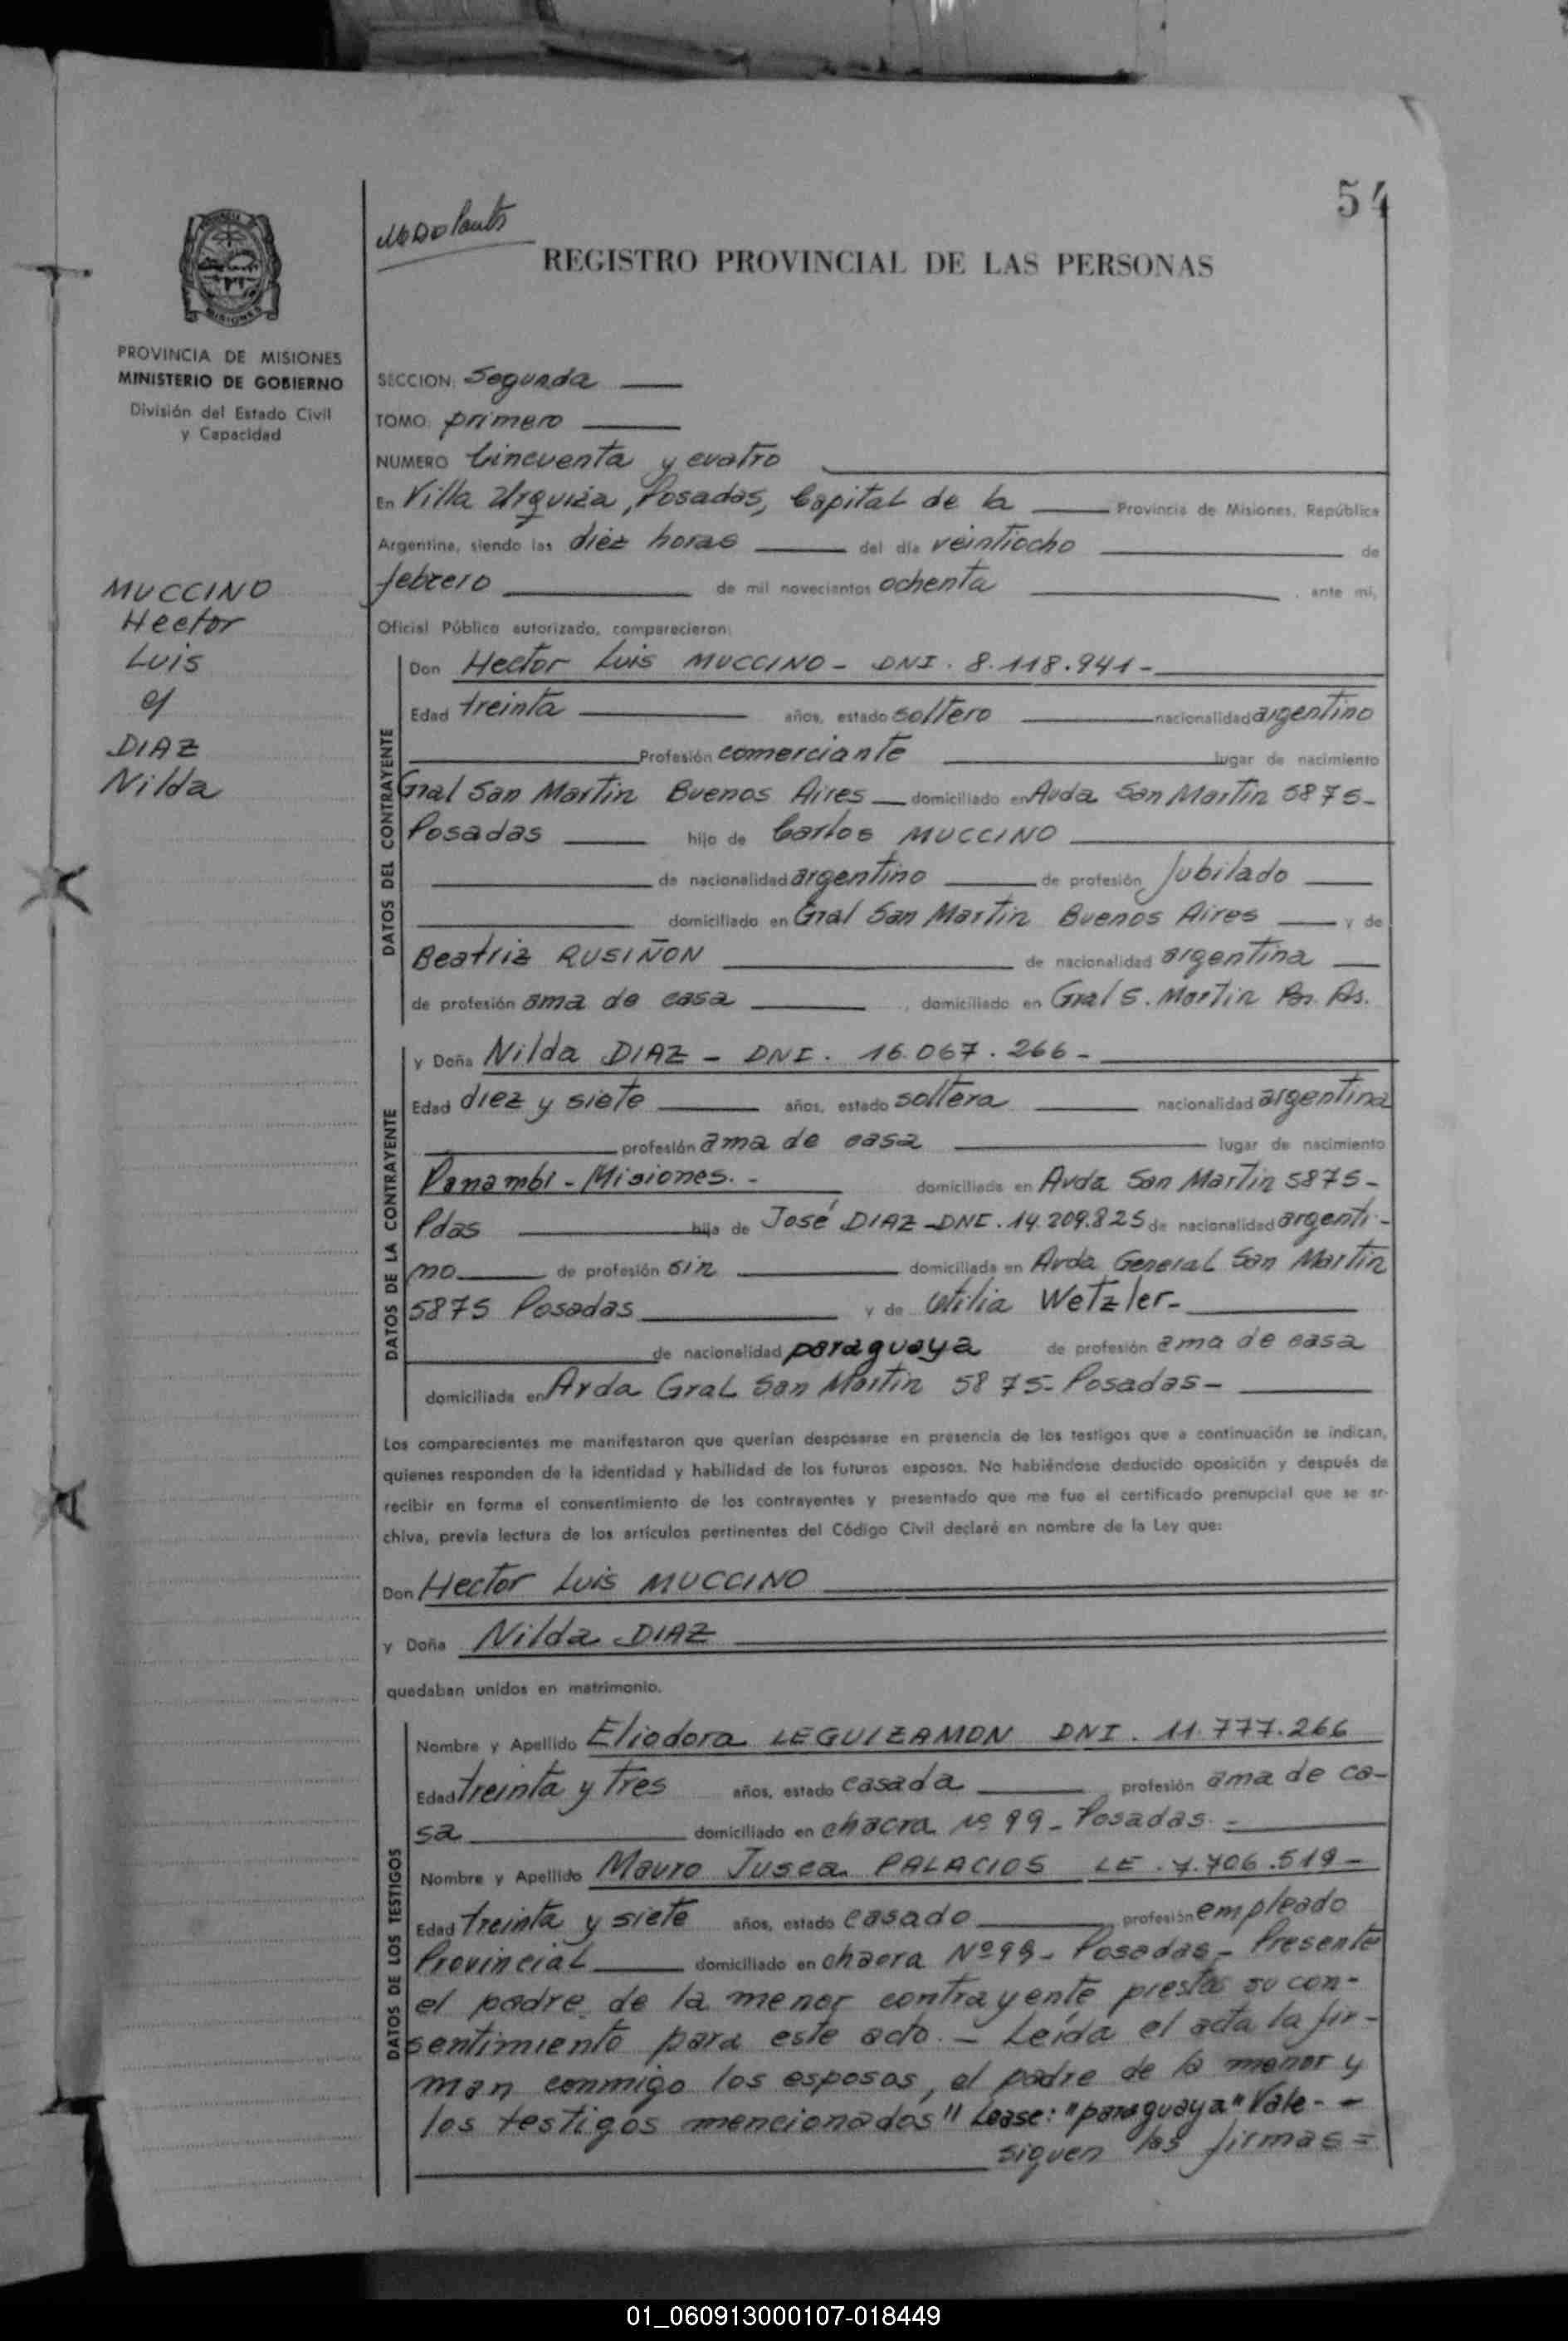 54
REGISTRO PROVINCIAL DE LAS PERSONAS
MISIONES
PROVINCIA DE MISIONES
MINISTERIO DE GOBIERNO
División del Estado Civil
y Capacidad
SECCION: Segunda
TOMO: primero
NUMERO Cincuenta y cuatro
En Villa Urquiza, Posadas, Capital de la Provincia de Misiones, República
Argentina, siendo las diez horas del día veintiocho de
febrero de mil novecientos ochenta, ante mí,
MUCCINO
Hector
Luis
c/
DIAZ
Nilda
Oficial Público autorizado, comparecieron:
DATOS DEL CONTRAYENTE
Don Hector Luis MUCCINO - DNI. 8.118.941-
Edad treinta años, estado soltero nacionalidad argentino
Profesión comerciante lugar de nacimiento
Gral San Martin Buenos Aires domiciliado en Avda San Martin 5875-
Posadas hijo de Carlos MUCCINO
de nacionalidad argentino de profesión Jubilado
domiciliado en Gral San Martin Buenos Aires y de
Beatriz RUSIÑON de nacionalidad argentina
de profesión ama de casa, domiciliado en Gral S. Martin Bs. As.
DATOS DE LA CONTRAYENTE
y Doña Nilda DIAZ - DNI. 16.067.266-
Edad diez y siete años, estado soltera nacionalidad argentina
profesión ama de casa lugar de nacimiento
Panambi - Misiones. - domiciliada en Avda San Martin 5875-
Pdas hija de José DIAZ - DNI. 14.209.825 de nacionalidad argenti-
no de profesión sin domiciliada en Avda General San Martin
5875 Posadas y de Wetzler-
de nacionalidad paraguaya de profesión ama de casa
domiciliada en Avda Gral San Martin 5875- Posadas-
Los comparecientes me manifestaron que querían desposarse en presencia de los testigos que a continuación se indican,
quienes responden de la identidad y habilidad de los futuros esposos. No habiéndose deducido oposición y después de
recibir en forma el consentimiento de los contrayentes y presentado que me fue el certificado prenupcial que se ar-
chiva, previa lectura de los artículos pertinentes del Código Civil declaré en nombre de la Ley que:
Don Hector Luis MUCCINO
y Doña Nilda DIAZ
quedaban unidos en matrimonio.
DATOS DE LOS TESTIGOS
Nombre y Apellido Eliodora LEGUIZAMON DNI. 11.777.266
Edad treinta y tres años, estado casada profesión ama de ca-
sa domiciliado en chacra Nº 99- Posadas. -
Nombre y Apellido Mauro Jusca PALACIOS LE. 7.706.519-
Edad treinta y siete años, estado casado, profesión empleado
Provincial domiciliado en chacra Nº 99- Posadas- Presente
el padre de la menor contrayente presta su con-
sentimiento para este acto. - Leída el acta la fir-
man conmigo los esposos, el padre de la menor y
los testigos mencionados" Lease: "paraguaya" Vale- -
siguen las firmas =
01_060913000107-018449